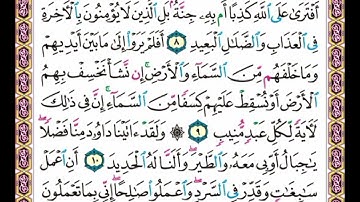 أَفْتَرَىٰ عَلَى ٱللَّهِ كَذِبًا أَم بِهِۦ جِنَّةٌۢ بَلِ ٱلَّذِينَ لَا يُؤْمِنُونَ بِٱلْءَاخِرَةِ
فِى ٱلْعَذَابِ وَٱلضَّلَٰلِ ٱلْبَعِيدِ ٨ أَفَلَمْ يَرَوْا۟ إِلَىٰ مَا بَيْنَ أَيْدِيهِمْ
وَمَا خَلْفَهُم مِّنَ ٱلسَّمَآءِ وَٱلْأَرْضِ إِن نَّشَأْ نَخْسِفْ بِهِمُ
ٱلْأَرْضَ أَوْ نُسْقِطْ عَلَيْهِمْ كِسَفًا مِّنَ ٱلسَّمَآءِ إِنَّ فِى ذَٰلِكَ
لَءَايَةً لِّكُلِّ عَبْدٍ مُّنِيبٍ ٩ ۞ وَلَقَدْ ءَاتَيْنَا دَاوُۥدَ مِنَّا فَضْلًا
يَٰجِبَالُ أَوِّبِى مَعَهُۥ وَٱلطَّيْرَ وَأَلَنَّا لَهُ ٱلْحَدِيدَ ١٠ أَنِ ٱعْمَلْ
سَٰبِغَٰتٍ وَقَدِّرْ فِى ٱلسَّرْدِ وَٱعْمَلُوا۟ صَٰلِحًا إِنِّى بِمَا تَعْمَلُونَ